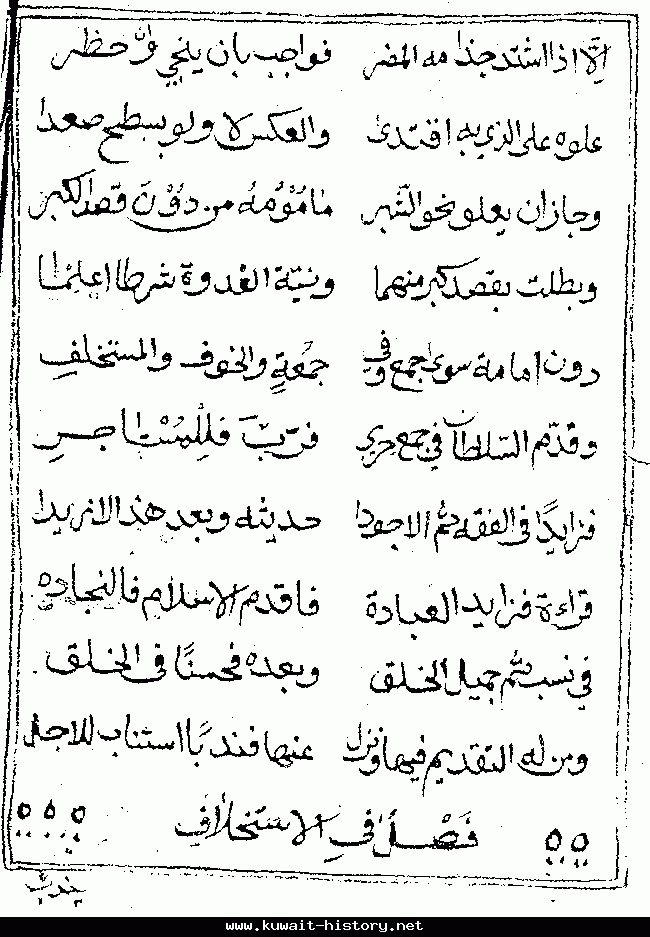 إلّا اذا اشتد جذا مه المضر فواجب بان ينحي وان حظر
علوه على الذي به اقتدى والعكس لا ولو بسطح صعدا
وجاز ان يعلو نحو الشبر مامومه من دون قصد الكبر
وبطلت بقصد كبر منهما ونية القدوة شرطا اعلما
دون امامة سوى جمع وفي جمعة والخوف والمستخلف
وقدم السلطان في جمع حري فرب فللمستاجر
فزايدا في الفقه ثم الاجودا حديثه وبعد هذا الازيدا
قراءة فزايد العبادة فاقدم الاسلام فالنجاده
في نسب ثم جميل الخلق وبعده فحسنا في الخلق
ومن له التقديم فيها ونزل عنها فندبا استناب للاجل
فصل في الاستخلاف
يندب
www.kuwait-history.net